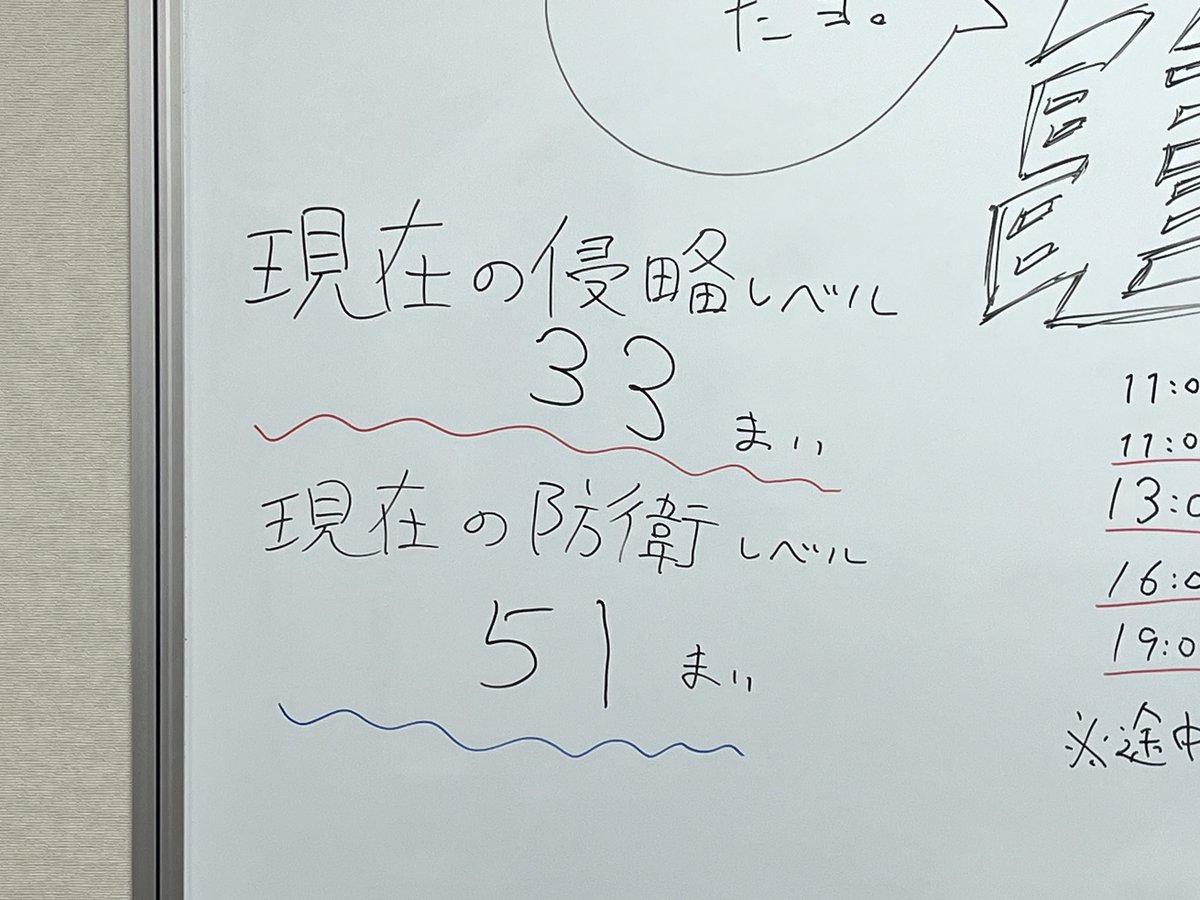 たす。
現在の侵略レベル
33 まい
現在の防衛レベル
51 まい
11:0
11:0
13:0
16:0
19:0
※途中